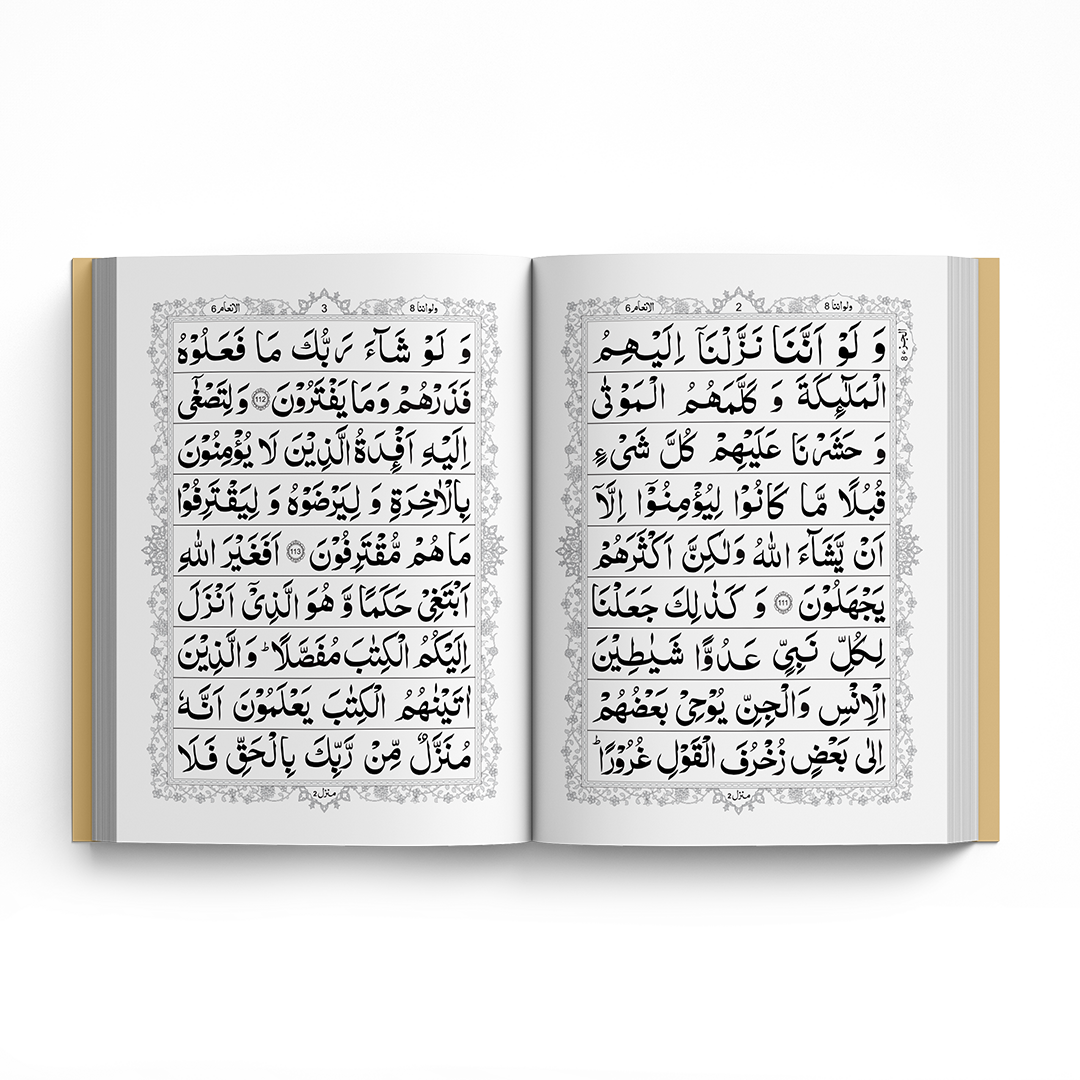 ولواننا 8
2
الانعام 6
الجزء 8
وَ لَوْ اَنَّنَا نَزَّلْنَاۤ اِلَیْهِمُ
الْمَلٰٓىِٕكَةَ وَ كَلَّمَهُمُ الْمَوْتٰى
وَ حَشَرْنَا عَلَیْهِمْ كُلَّ شَیْءٍ
قُبُلًا مَّا كَانُوْا لِیُؤْمِنُوْۤا اِلَّاۤ
اَنْ یَّشَآءَ اللّٰهُ وَلٰكِنَّ اَكْثَرَهُمْ
یَجْهَلُوْنَ 111 وَ كَذٰلِكَ جَعَلْنَا
لِكُلِّ نَبِیٍّ عَدُوًّا شَیٰطِیْنَ
الْاِنْسِ وَالْجِنِّ یُوْحِیْ بَعْضُهُمْ
اِلٰى بَعْضٍ زُخْرُفَ الْقَوْلِ غُرُوْرًاؕ
منزل 2
ولواننا 8
3
الانعام 6
وَ لَوْ شَآءَ رَبُّكَ مَا فَعَلُوْهُ
فَذَرْهُمْ وَمَا یَفْتَرُوْنَ 112 وَلِتَصْغٰۤى
اِلَیْهِ اَفْـِٕدَةُ الَّذِیْنَ لَا یُؤْمِنُوْنَ
بِالْاٰخِرَةِ وَ لِیَرْضَوْهُ وَ لِیَقْتَرِفُوْا
مَا هُمْ مُّقْتَرِفُوْنَ 113 اَفَغَیْرَ اللّٰهِ
اَبْتَغِیْ حَكَمًا وَّ هُوَ الَّذِیْۤ اَنْزَلَ
اِلَیْكُمُ الْكِتٰبَ مُفَصَّلًاؕ وَالَّذِیْنَ
اٰتَیْنٰهُمُ الْكِتٰبَ یَعْلَمُوْنَ اَنَّهٗ
مُنَزَّلٌ مِّنْ رَّبِّكَ بِالْحَقِّ فَلَا
منزل 2